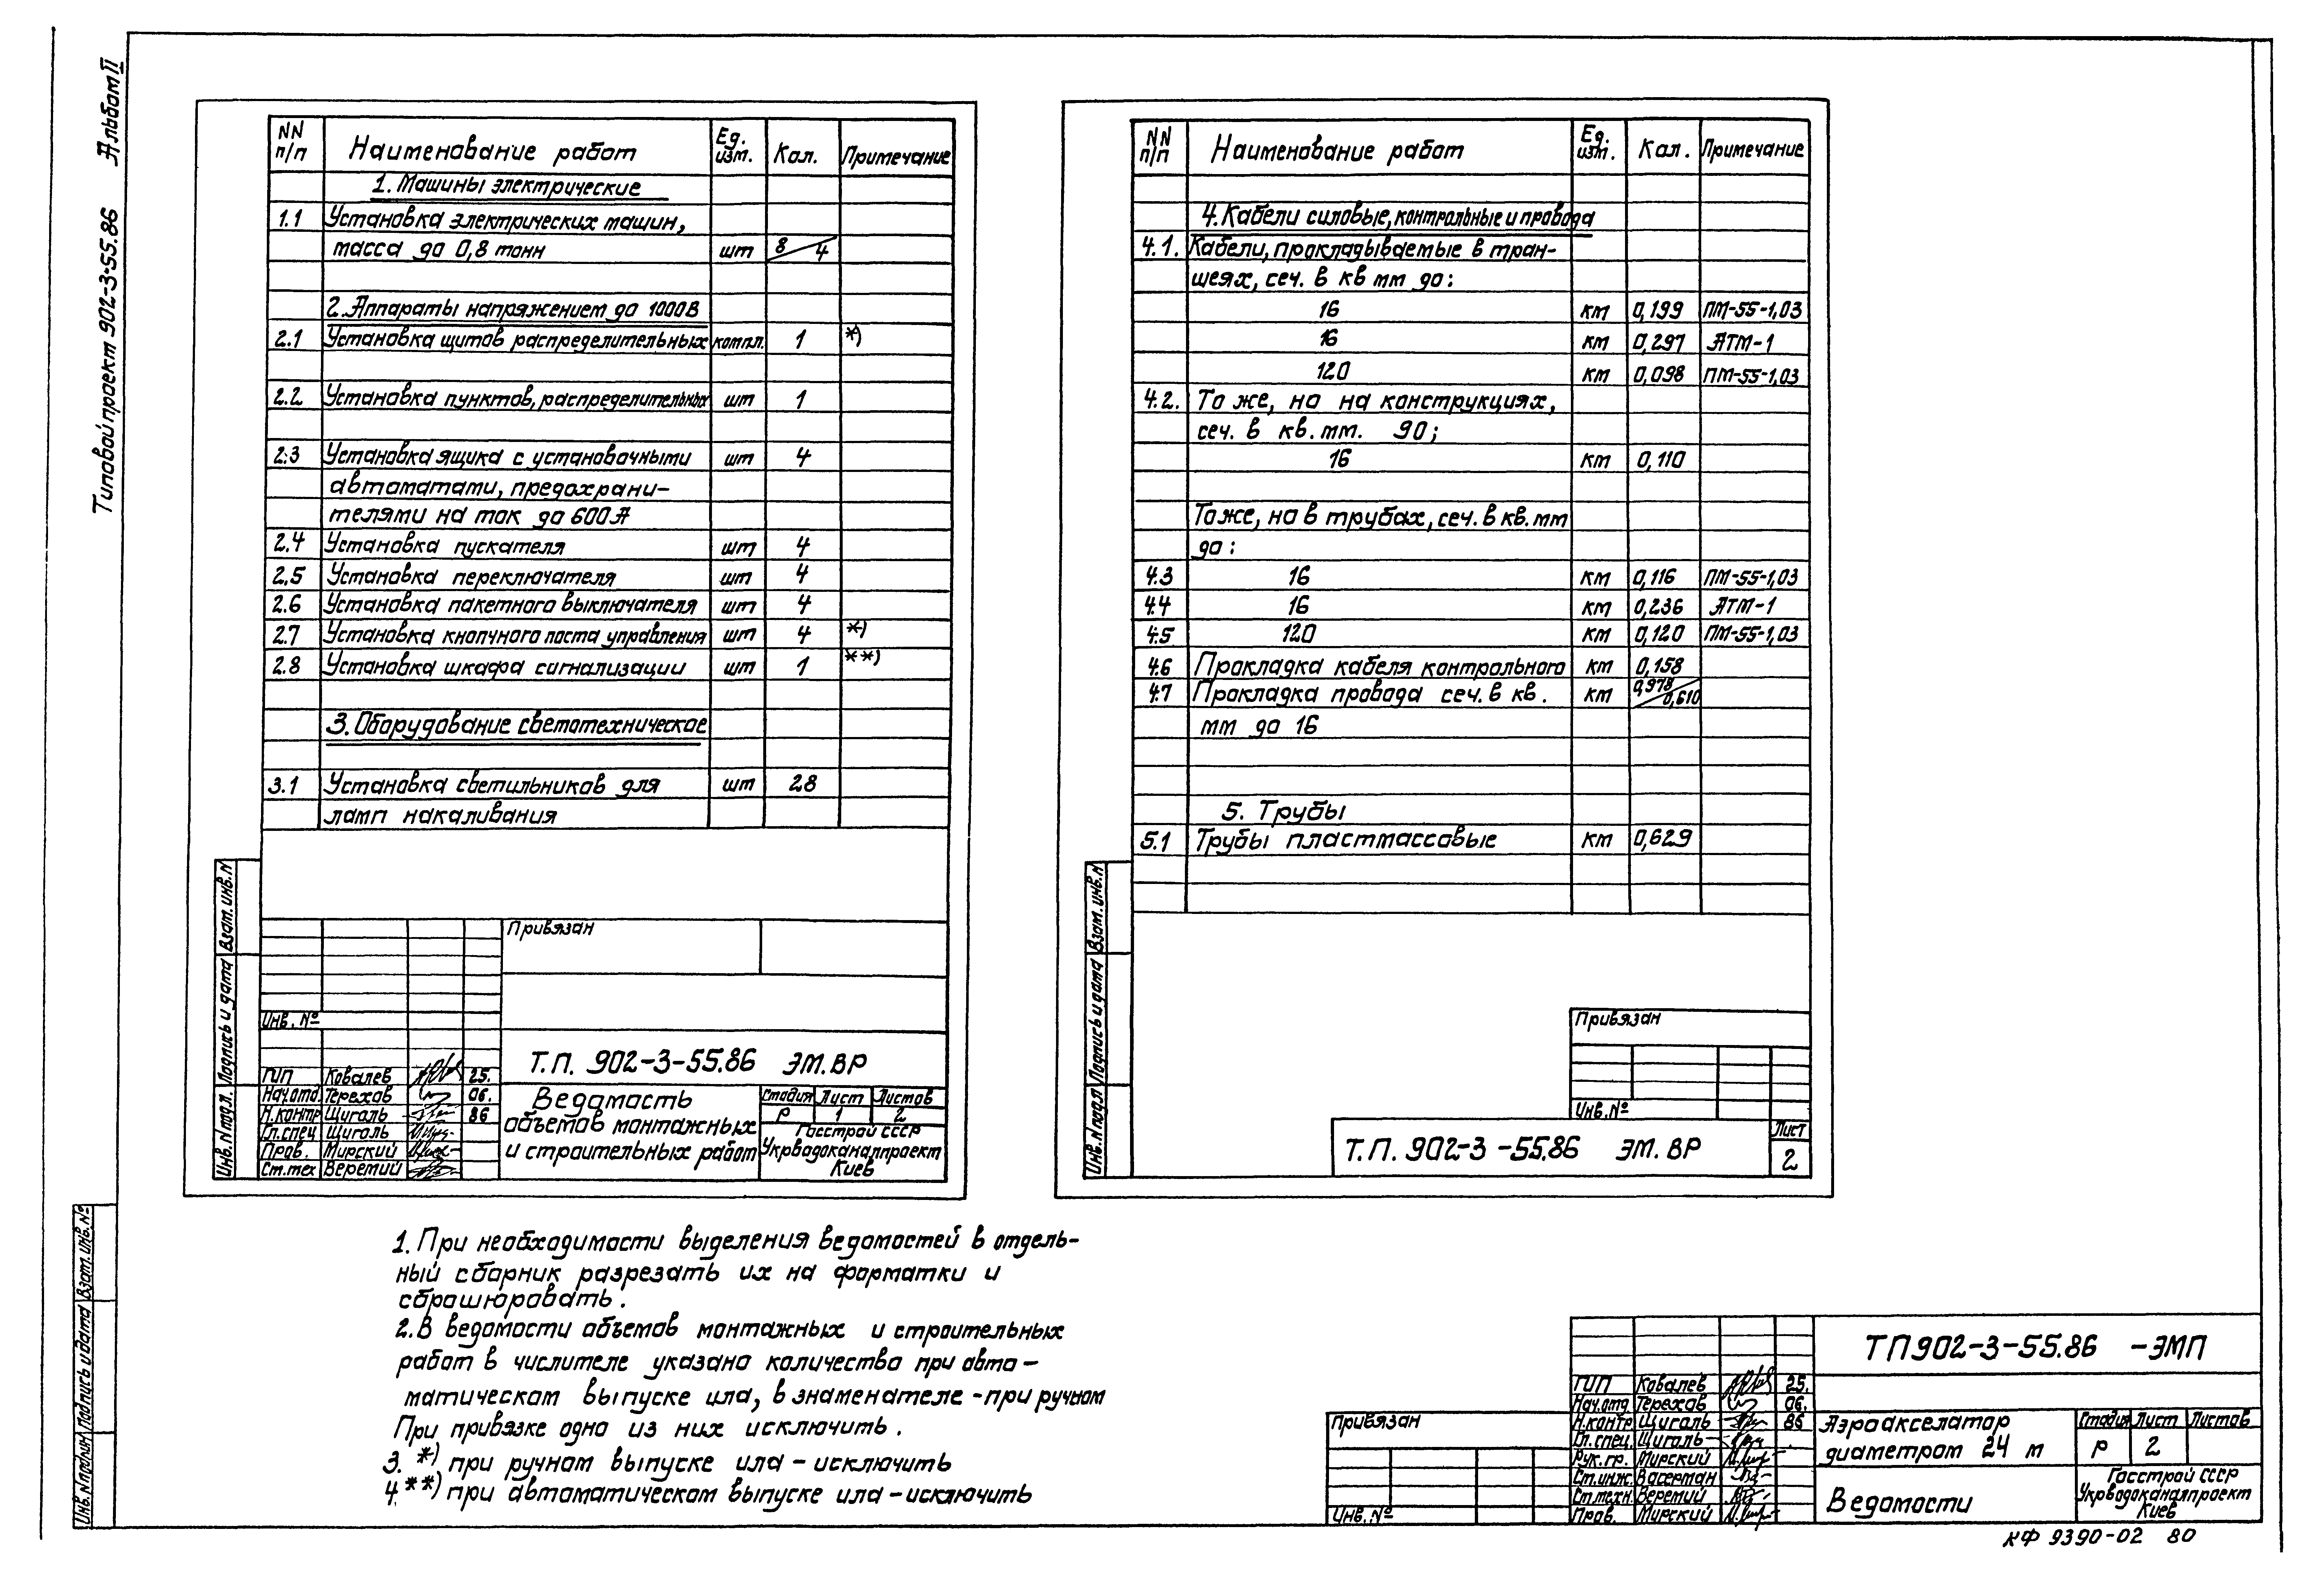 Типовой проект 902-3-55.86 Альбом II
NN п/п Наименование работ Ед. изм. Кол. Примечание
1. Машины электрические
1.1 Установка электрических машин,
масса до 0,8 тонн шт 8/4
2. Аппараты напряжением до 1000В
2.1 Установка щитов распределительных компл. 1 *)
2.2 Установка пунктов, распределительных шт 1
2.3 Установка ящика с установочными шт 4
автоматами, предохрани-
телями на ток до 600А
2.4 Установка пускателя шт 4
2.5 Установка переключателя шт 4
2.6 Установка пакетного выключателя шт 4
2.7 Установка кнопчного поста управления шт 4 *)
2.8 Установка шкафа сигнализации шт 1 **)
3. Оборудование светотехническое
3.1 Установка светильников для шт 28
ламп накаливания
Взам. инв. N
Подпись и дата
Инв. N подл.
Привязан
Инв. №
Т.П. 902-3-55.86 ЭМ.ВР
ГИП Ковалев 25.
Нач.отд. Терехов 06.
Н.контр Щиголь 86
Гл.спец Щиголь
Пров. Мирский
Ст.тех Веремий
Ведомость
объемов монтажных
и строительных работ
Стадия Лист Листов
Р 1 2
Госстрой СССР
Укрводоканалпроект
Киев
NN п/п Наименование работ Ед. изм. Кол. Примечание
4. Кабели силовые, контрольные и провода
4.1. Кабели, прокладываемые в тран-
шеях, сеч. в кв мм до:
16 км 0,199 ПМ-55-1,03
16 км 0,297 АТМ-1
120 км 0,098 ПМ-55-1,03
4.2. То же, но на конструкциях,
сеч. в кв. мм. до;
16 км 0,110
То же, но в трубах, сеч. в кв. мм
до:
4.3 16 км 0,116 ПМ-55-1,03
4.4 16 км 0,236 АТМ-1
4.5 120 км 0,120 ПМ-55-1,03
4.6 Прокладка кабеля контрольного км 0,158
4.7 Прокладка провода сеч. в кв. км 0,978/0,610
мм до 16
5. Трубы
5.1 Трубы пластмассовые км 0,629
Взам. инв. N
Подпись и дата
Инв. N подл
Привязан
Инв. №
Т.П. 902-3-55.86 ЭМ. ВР
Лист
2
1. При необходимости выделения ведомостей в отдель-
ный сборник разрезать их на форматки и
сброшюровать.
2. В ведомости объемов монтажных и строительных
работ в числителе указано количество при авто-
матическом выпуске ила, в знаменателе - при ручном
При привязке одно из них исключить.
3. *) при ручном выпуске ила - исключить
4. **) при автоматическом выпуске ила - исключить
Взам. инв. №
Подпись и дата
Привязан
Инв. №
ТП 902-3-55.86 -ЭМП
ГИП Ковалев 25.
Нач.отд. Терехов 06.
Н.контр. Щиголь 86
Гл.спец. Щиголь
Рук.гр. Мирский
Ст.инж. Васерман
Ст.техн. Веремий
Пров. Мирский
Аэроакселатор
диаметром 24 м
Стадия Лист Листов
Р 2
Ведомости
Госстрой СССР
Укрводоканалпроект
Киев
КФ 9390-02 80